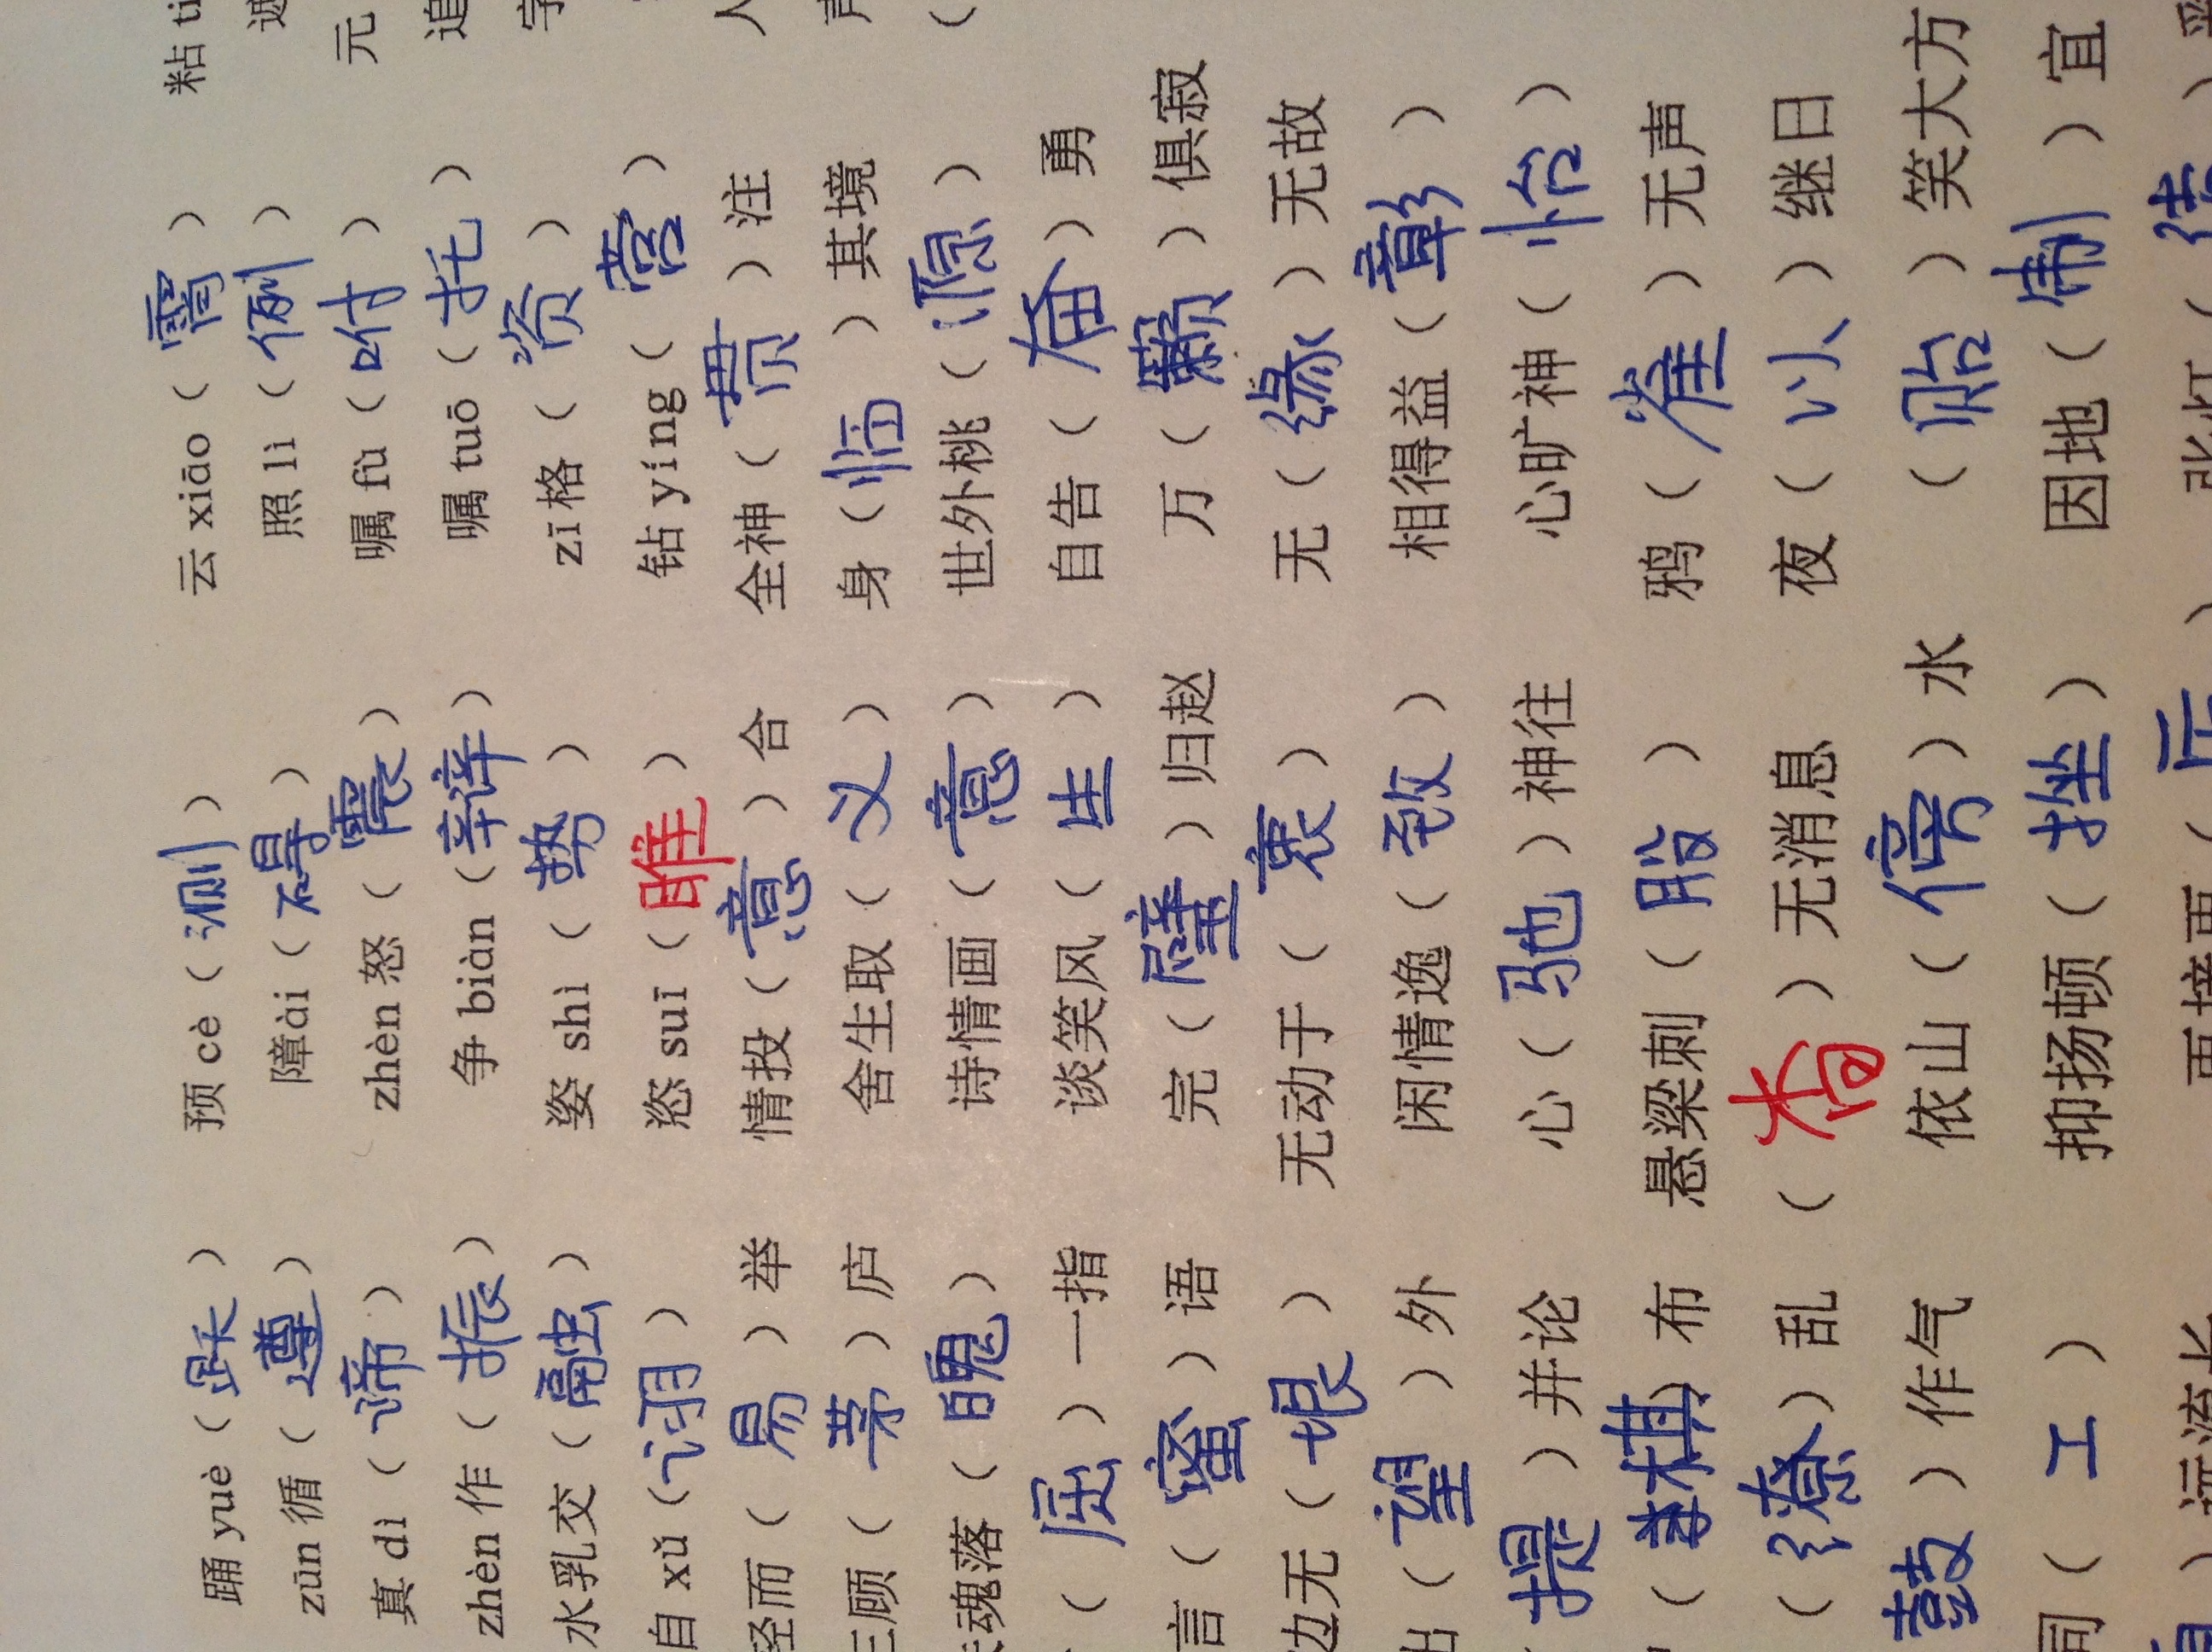 踊 yuè（跃） 预 cè（测） 云 xiāo（霄） 粘
zūn 循（遵） 障ài（碍） 照 lì（例）
真 dì（谛） zhèn 怒（震） 嘱 fù（咐） 元
zhèn 作（振） 争 biàn（辩） 嘱 tuō（托） 追
水乳交（融） 姿 shì（势） zī格（资）
自 xǔ（诩） 恣 suī（睢） 钻 yíng（营）
轻而（易）举 情投（意）合 全神（贯）注
三顾（茅）庐 舍生取（义） 身（临）其境
魂落（魄） 诗情画（意） 世外桃（源）（
（屈）一指 谈笑风（生） 自告（奋）勇
言（蜜）语 完（璧）归赵 万（籁）俱寂
边无（垠） 无动于（衷） 无（缘）无故
出（望）外 闲情逸（致） 相得益（彰）
（提）并论 心（驰）神往 心旷神（怡）
（棋）布 悬梁刺（股） 鸦（雀）无声
（缭）乱 （杳）无消息 夜（以）继日
鼓）作气 依山（傍）水 （贻）笑大方
同（工） 抑扬顿（挫） 因地（制）宜
）远流长 再接再（厉） 张灯（结）彩